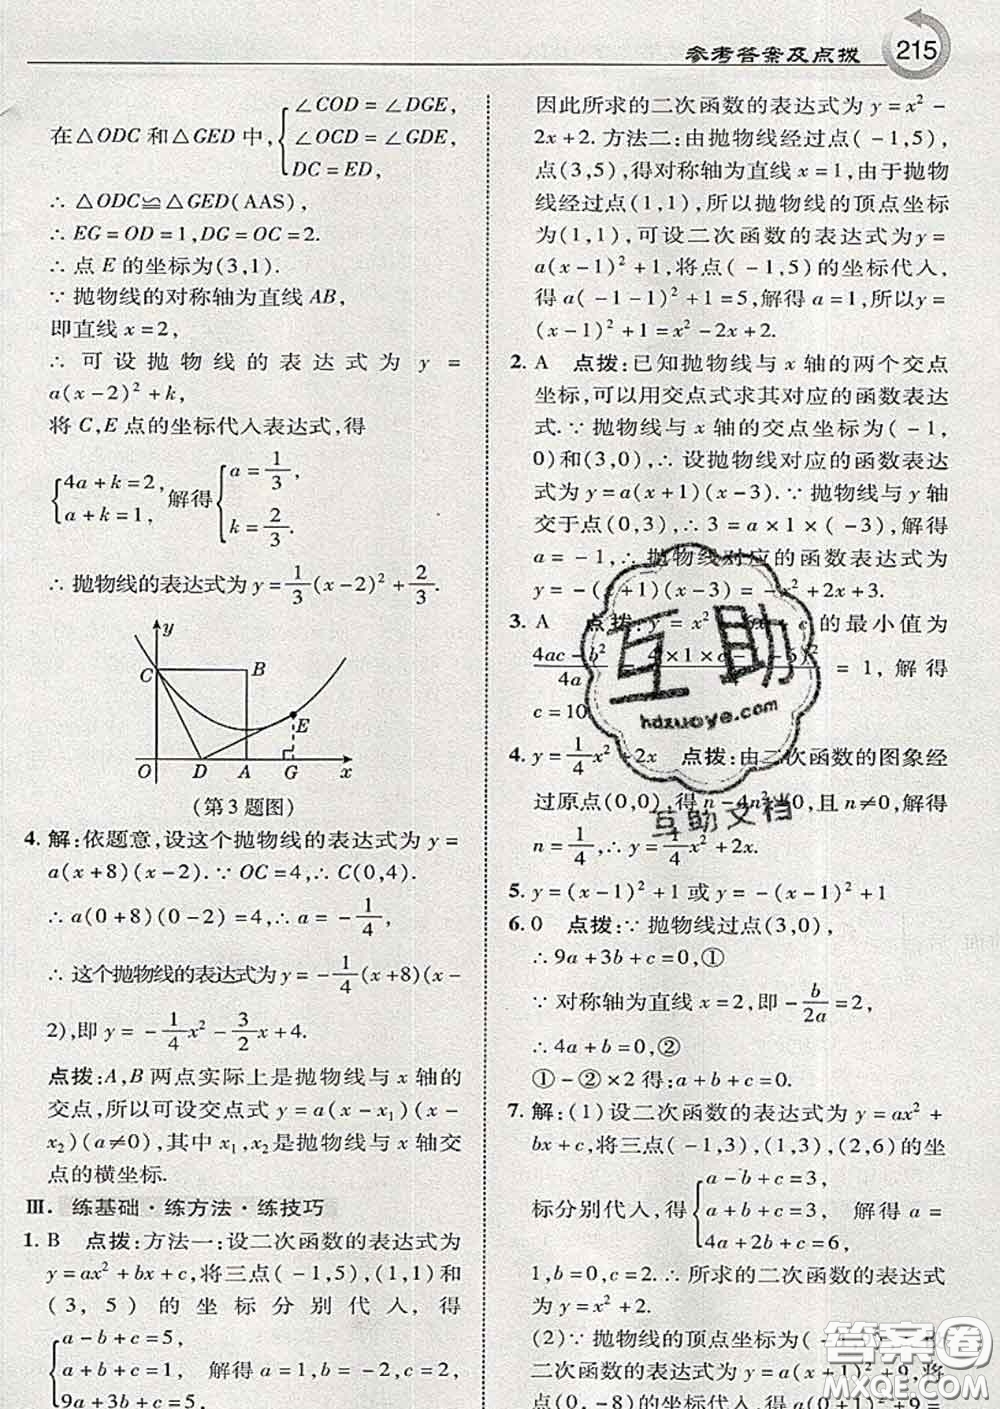 参考答案及点拨 215
在△ODC 和△GED 中,{∠COD = ∠DGE,
∠OCD = ∠GDE,
DC = ED,
∴ △ODC≌△GED(AAS),
∴ EG = OD = 1,DG = OC = 2.
∴ 点 E 的坐标为(3,1).
∵ 抛物线的对称轴为直线 AB,
即直线 x = 2,
∴ 可设抛物线的表达式为 y =
a(x-2)² + k,
将 C,E 点的坐标代入表达式,得
{4a + k = 2, a + k = 1, 解得{a = 1/3, k = 2/3.
∴ 抛物线的表达式为 y = 1/3(x-2)² + 2/3.
y
C B
E
O D A G x
(第 3 题图)
4. 解:依题意,设这个抛物线的表达式为 y =
a(x+8)(x-2). ∵ OC = 4,∴ C(0,4).
∴ a(0+8)(0-2) = 4,∴ a = -1/4,
∴ 这个抛物线的表达式为 y = -1/4(x+8)(x-
2),即 y = -1/4x² - 3/2x + 4.
点拨:A,B 两点实际上是抛物线与 x 轴的
交点,所以可设交点式 y = a(x-x₁)(x-
x₂)(a≠0),其中 x₁,x₂是抛物线与 x 轴交
点的横坐标.
Ⅲ. 练基础·练方法·练技巧
1. B 点拨:方法一:设二次函数的表达式为
y = ax² + bx + c,将三点(-1,5),(1,1)和
(3,5)的坐标分别代人,得
{a - b + c = 5,
a + b + c = 1, 解得 a = 1,b = -2,c = 2,
9a + 3b + c = 5,
因此所求的二次函数的表达式为 y = x² -
2x + 2. 方法二:由抛物线经过点(-1,5),
点(3,5),得对称轴为直线 x = 1,由于抛物
线经过点(1,1),所以抛物线的顶点坐标
为(1,1),可设二次函数的表达式为 y =
a(x-1)² + 1,将点(-1,5)的坐标代入,
得 a(-1-1)² + 1 = 5,解得 a = 1,所以 y =
(x-1)² + 1 = x² - 2x + 2.
2. A 点拨:已知抛物线与 x 轴的两个交点
坐标,可以用交点式求其对应的函数表达
式. ∵ 抛物线与 x 轴的交点坐标为(-1,
0)和(3,0),∴ 设抛物线对应的函数表达
式为 y = a(x+1)(x-3). ∵ 抛物线与 y 轴
交于点(0,3),∴ 3 = a×1×(-3),解得
a = -1,∴ 抛物线对应的函数表达式为
y = -(x+1)(x-3) = -x² + 2x + 3.
3. A 点拨:y = x² 6x + c 的最小值为
4ac - b²/4a 4×1×c- = 1,解得
c = 10
4. y = 1/4x² + 2x 点拨:由二次函数的图象经
过原点(0,0),得 n - 4n² = 0,且 n≠0,解得
n = 1/4,∴ y = 1/4x² + 2x.
5. y = (x-1)² + 1 或 y = -(x-1)² + 1
6. 0 点拨:∵ 抛物线过点(3,0),
∴ 9a + 3b + c = 0,①
∵ 对称轴为直线 x = 2,即 -b/2a = 2,
∴ 4a + b = 0,②
① - ② × 2 得:a + b + c = 0.
7. 解:(1)设二次函数的表达式为 y = ax² +
bx + c,将三点(-1,3),(1,3),(2,6)的坐
标分别代入,得{a - b + c = 3,
a + b + c = 3, 解得 a =
4a + 2b + c = 6,
1,b = 0,c = 2. ∴ 所求的二次函数的表达式
为 y = x² + 2.
(2)∵ 抛物线的顶点坐标为(-
二次函数的表达式为 y = a(x+1)² + 9,将
点(0,-8)的坐标代入,得 a(0+1)² + 9 =
互助
hdzuoye.com
互助文档
答案圈
MXQE.COM